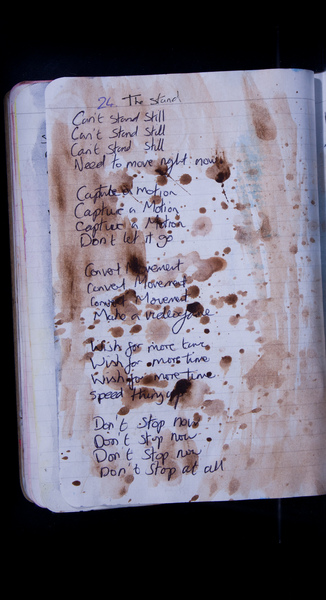 26. The Stand
Can't stand still
Can't stand still
Can't stand still
Need to move right now
Capture a motion
Capture a Motion
Capture a Motion
Don't let it go
Convert Movement
Convert Movement
Convert Movement
Make a
Wish for more time
Wish for more time
Wish for more time
speed things up
Don't Stop now
Don't Stop now
Don't Stop now
Don't Stop at all